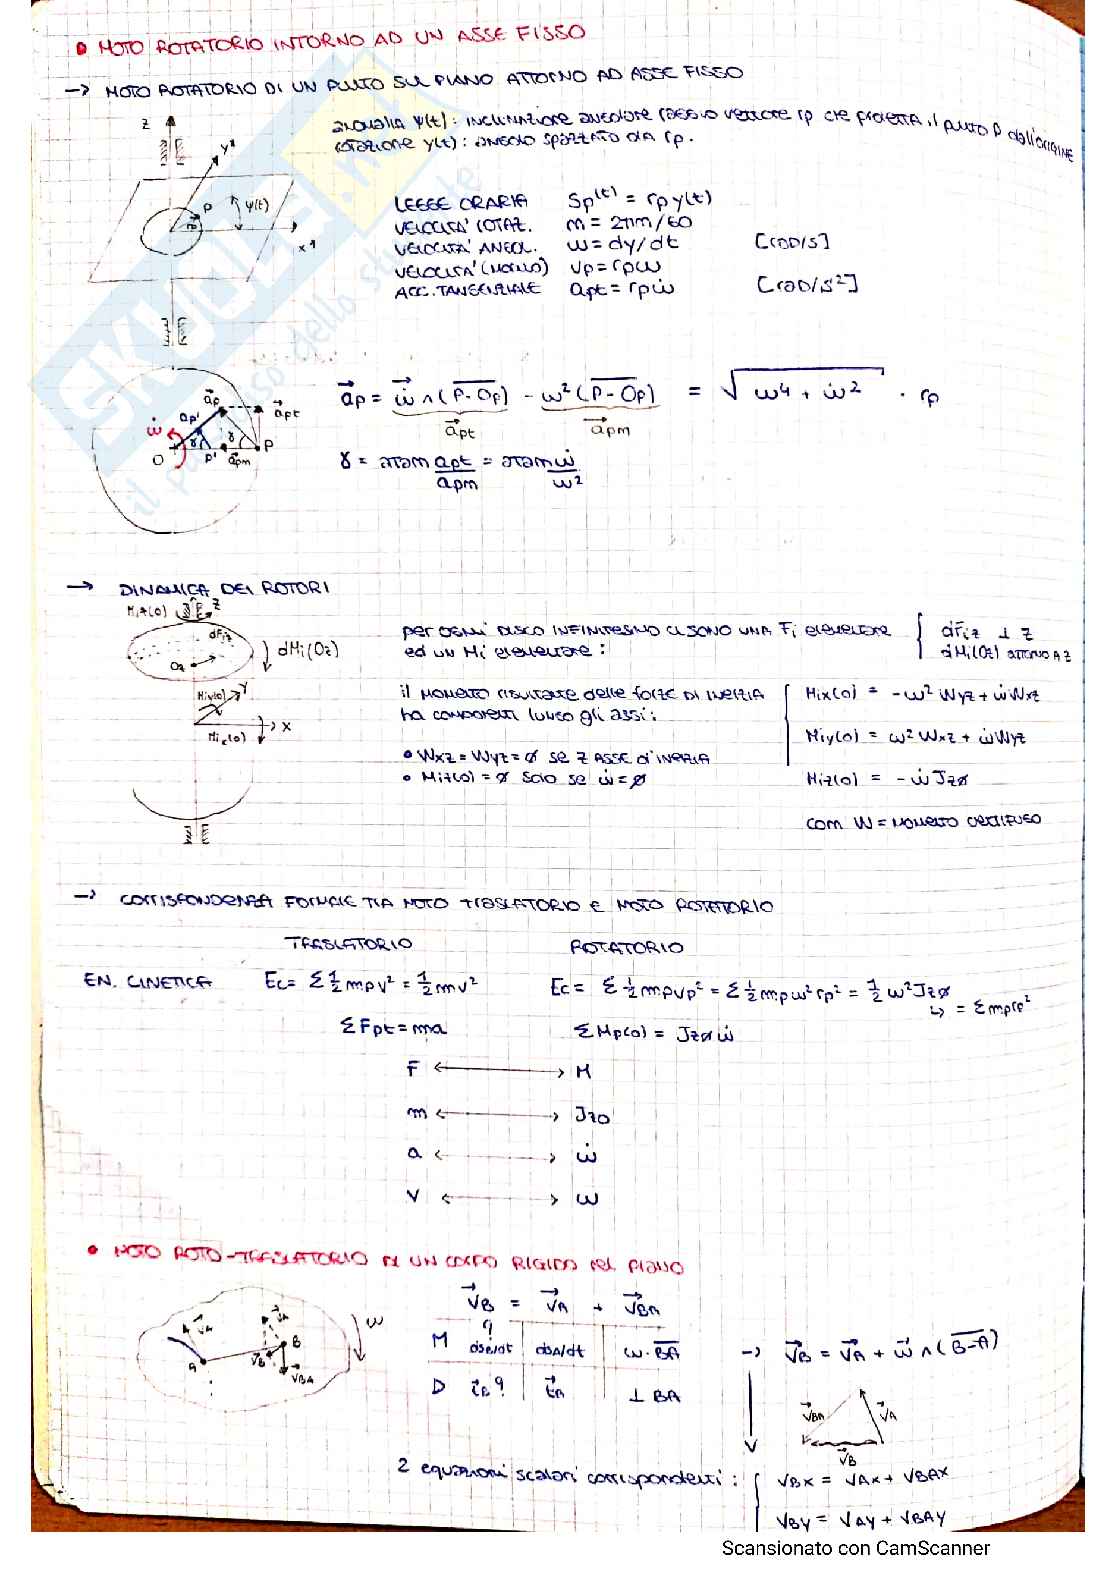 • MOTO ROTATORIO INTORNO AD UN ASSE FISSO
→ MOTO ROTATORIO DI UN PUNTO SUL PIANO ATTORNO AD ASSE FISSO
anomalia ψ(t): inclinazione angolare raggio vettore rp che proietta il punto P dall'origine
rotazione γ(t): angolo spazzato da rp.
z
y*
P
ψ(t)
x*
LEGGE ORARIA Sp(t) = rp γ(t)
VELOCITA' ROTAZ. m = 2πm/60
VELOCITA' ANGOL. ω = dγ/dt [rad/s]
VELOCITA' (MODULO) vp = rpω
ACC. TANGENZIALE apt = rpω̇ [rad/s²]
ap apt
ap'
ω̇
γ γ
O P' apm P
ap = ω̇ ∧ (P-Op) - ω² (P-Op) = √ω⁴ + ω̇² · rp
apt apm
γ = atam apt/apm = atam ω̇/ω²
→ DINAMICA DEI ROTORI
Miz(o) z
dFiz
Oz
dMi(Oz)
Miy(o) y
x
Mix(o)
per ogni disco infinitesimo ci sono una Fi elementare { dFiz ⊥ z
ed un Mi elementare: dMi(Oz) attorno a z
il momento risultante delle forze di inerzia
ha componenti lungo gli assi:
Mix(o) = -ω² Wyz + ω̇ Wxz
Miy(o) = ω² Wxz + ω̇ Wyz
Miz(o) = -ω̇ Jzø
• Wxz = Wyz = ø se z ASSE di INERZIA
• Miz(o) = ø solo se ω̇ = ø
com W = MOMENTO CENTRIFUGO
→ CORRISPONDENZA FORMALE TRA MOTO TRASLATORIO E MOTO ROTATORIO
TRASLATORIO ROTATORIO
EN. CINETICA Ec = Σ ½ mp v² = ½ mv² Ec = Σ ½ mp vp² = Σ ½ mp ω² rp² = ½ ω² Jzø
↳ = Σ mp rp²
ΣFpt = ma ΣMp(o) = Jzø ω̇
F ↔ M
m ↔ Jzo
a ↔ ω̇
V ↔ ω
• MOTO ROTO-TRASLATORIO DI UN CORPO RIGIDO NEL PIANO
vA
A
B
vB
vBA
ω
vB = vA + vBA
M dsB/dt dsA/dt ω·BA
D tB? tA ⊥ BA
→ vB = vA + ω ∧ (B-A)
vBA vA
vB
2 equazioni scalari corrispondenti: { vBx = vAx + vBAx
vBy = vAy + vBAy
SKUOLA.net
il paradiso dello studente
Scansionato con CamScanner